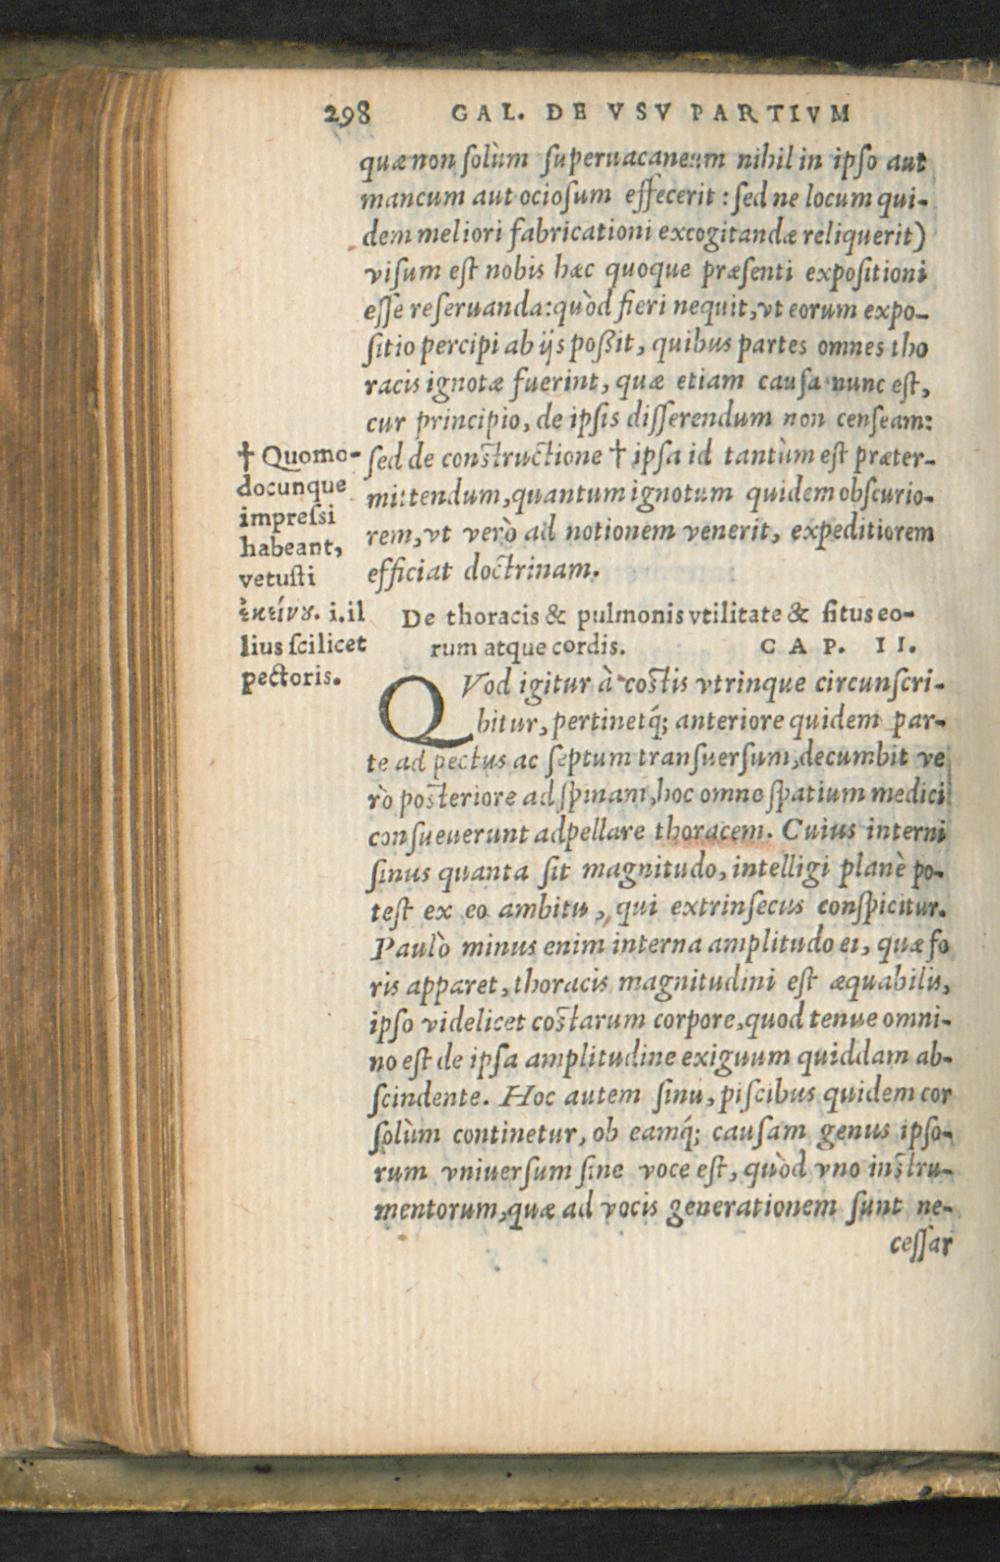 298 GAL. DE VSV PARTIVM
quæ non solùm superuacaneum nihil in ipso aut
mancum aut ociosum effecerit : sed ne locum qui-
dem meliori fabricationi excogitandæ reliquerit)
visum est nobis hæc quoque præsenti expositioni
esse reseruanda: quòd fieri nequit, vt eorum expo-
sitio percipi ab ijs poßit, quibus partes omnes tho
racis ignotæ fuerint, quæ etiam causa nunc est,
cur principio, de ipsis disserendum non censeam:
sed de constructione † ipsa id tantùm est præter-
mittendum, quantum ignotum quidem obscurio-
rem, vt verò ad notionem venerit, expeditiorem
efficiat doctrinam.
† Quomo-
docunque
impressi
habeant,
vetusti
ἐκείνȣ. i. il
lius scilicet
pectoris.
De thoracis & pulmonis vtilitate & situs eo-
rum atque cordis. CAP. II.
QVod igitur à costis vtrinque circunscri-
bitur, pertinetq́; anteriore quidem par-
te ad pectus ac septum transuersum, decumbit ve
rò posteriore ad spinam, hoc omne spatium medici
consueuerunt adpellare thoracem. Cuius interni
sinus quanta sit magnitudo, intelligi planè po-
test ex eo ambitu, qui extrinsecus conspicitur.
Paulò minus enim interna amplitudo ei, quæ fo
ris apparet, thoracis magnitudini est æquabilis,
ipso videlicet costarum corpore, quod tenue omni-
no est de ipsa amplitudine exiguum quiddam ab-
scindente. Hoc autem sinu, piscibus quidem cor
solùm continetur, ob eamq́; causam genus ipso-
rum vniuersum sine voce est, quòd vno instru-
mentorum, quæ ad vocis generationem sunt ne-
cessar